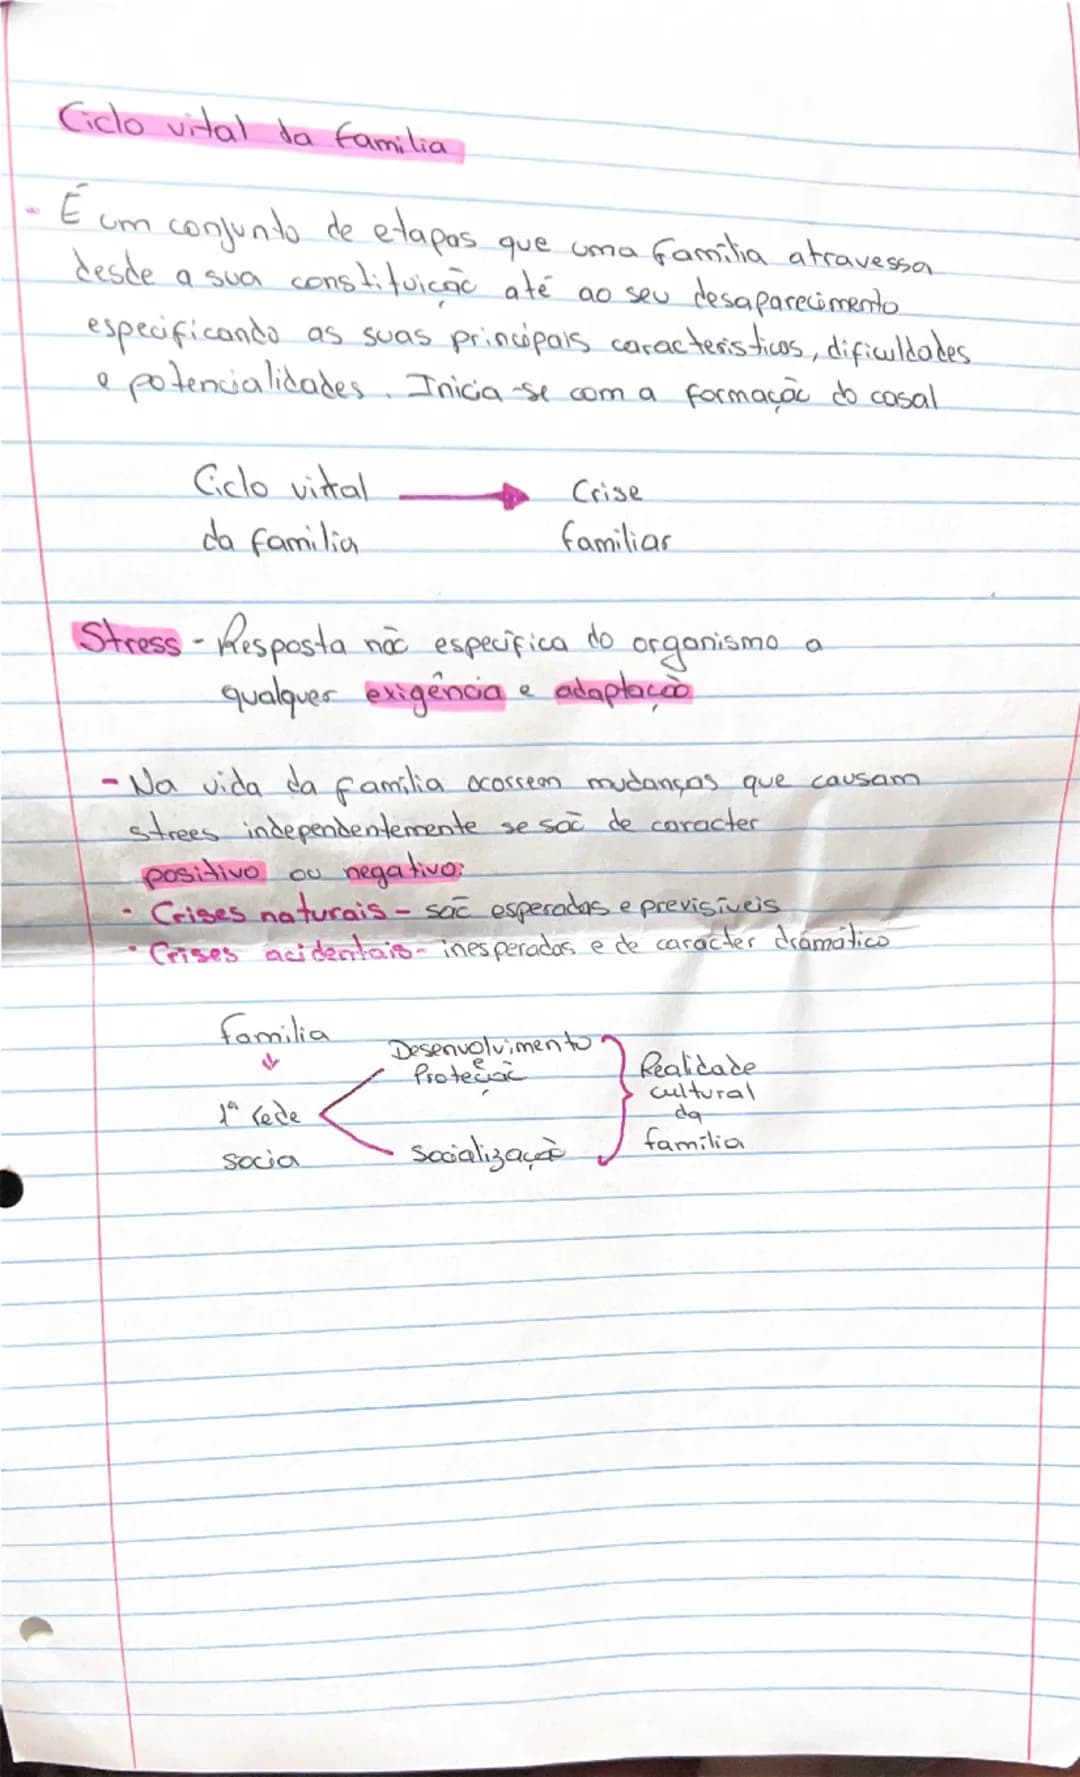 Ciclo vital da familia
- É um conjunto de etapas que uma família atravessa
desde a sua constituição até ao seu desaparecimento
especificando as suas principais caracteristicas, dificuldades
e potencialidades. Inicia-se com a formação do casal
Ciclo vital → Crise
da familia familiar
Stress - Resposta não especifica do organismo a
qualquer exigência e adaptação
- Na vida da família ocorrem mudanças que causam
strees independentemente se são de caracter
positivo ou negativo:
· Crises naturais - são esperadas e previsíveis
· Crises acidentais - inesperadas e de caracter dramático
familia
↓
1ª rede
socia
Desenvolvimento
e
Proteção
Socialização
Realidade
cultural
da
família